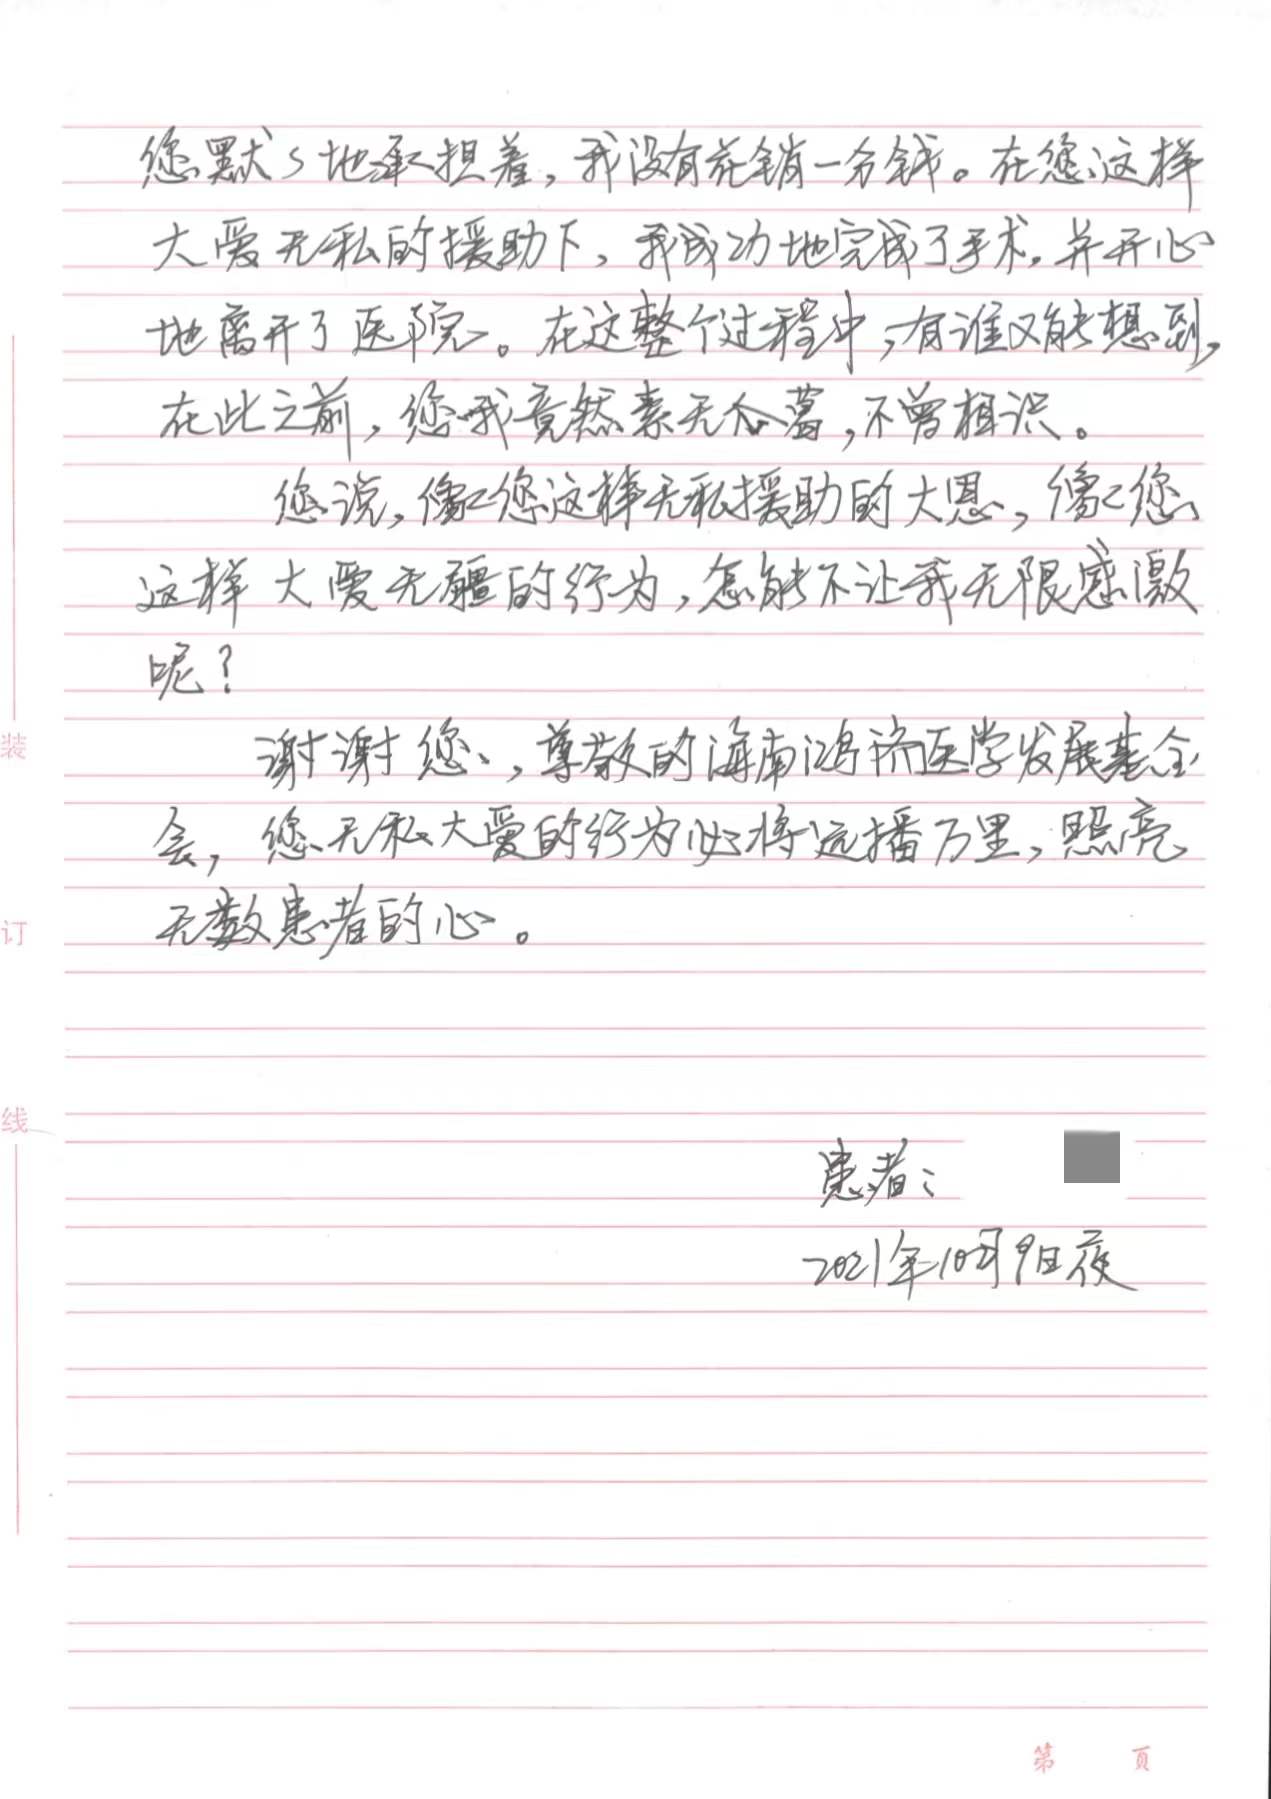 您默々地承担着，我没有花销一分钱。在您这样
大爱无私的援助下，我成功地完成了手术，并开心
地离开了医院。在这整个过程中，有谁又能想到，
在此之前，您我竟然素无瓜葛，不曾相识。
您说，像您这样无私援助的大恩，像您
这样大爱无疆的行为，怎能不让我无限感激
呢？
谢谢您，尊敬的海南鸿济医学发展基金
会，您无私大爱的行为必将远播万里，照亮
无数患者的心。
装
订
线
患者：
2021年10月9日夜
第 页